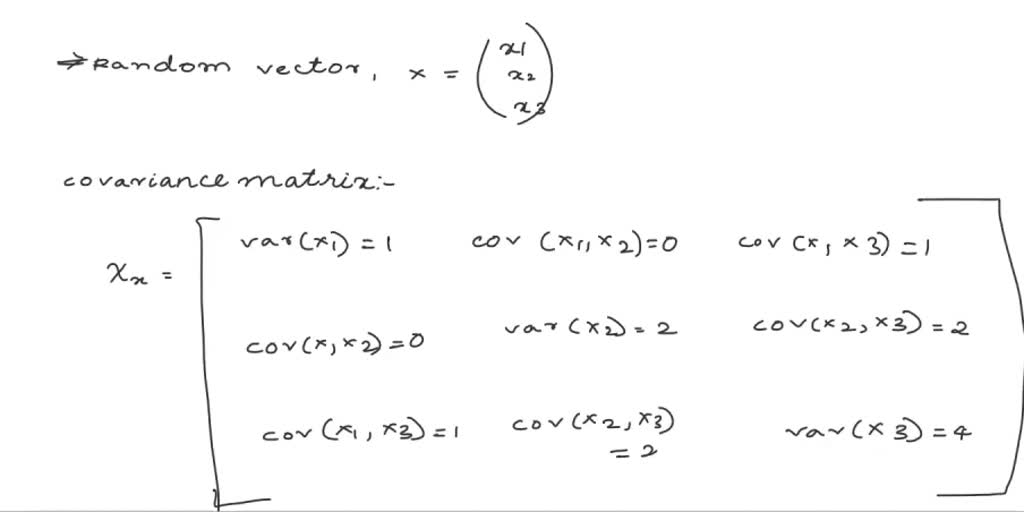 → Random vector, x = (x1
x2
x3)
covariance matrix:-
var(x1) = 1 cov (x1, x2)=0 cov (x, x3) = 1
Xx =
cov(x, x2) = 0 var (x2) = 2 cov(x2, x3) = 2
cov (x1, x3) = 1 cov (x2, x3) var(x3) = 4
= 2